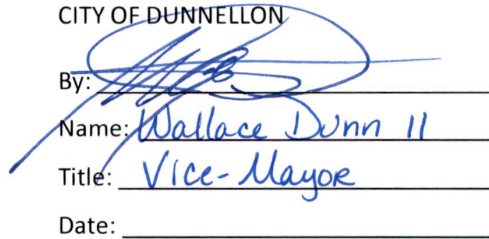 CITY OF DUNNELLON
By:
Name: Wallace Dunn II
Title: Vice-Mayor
Date: